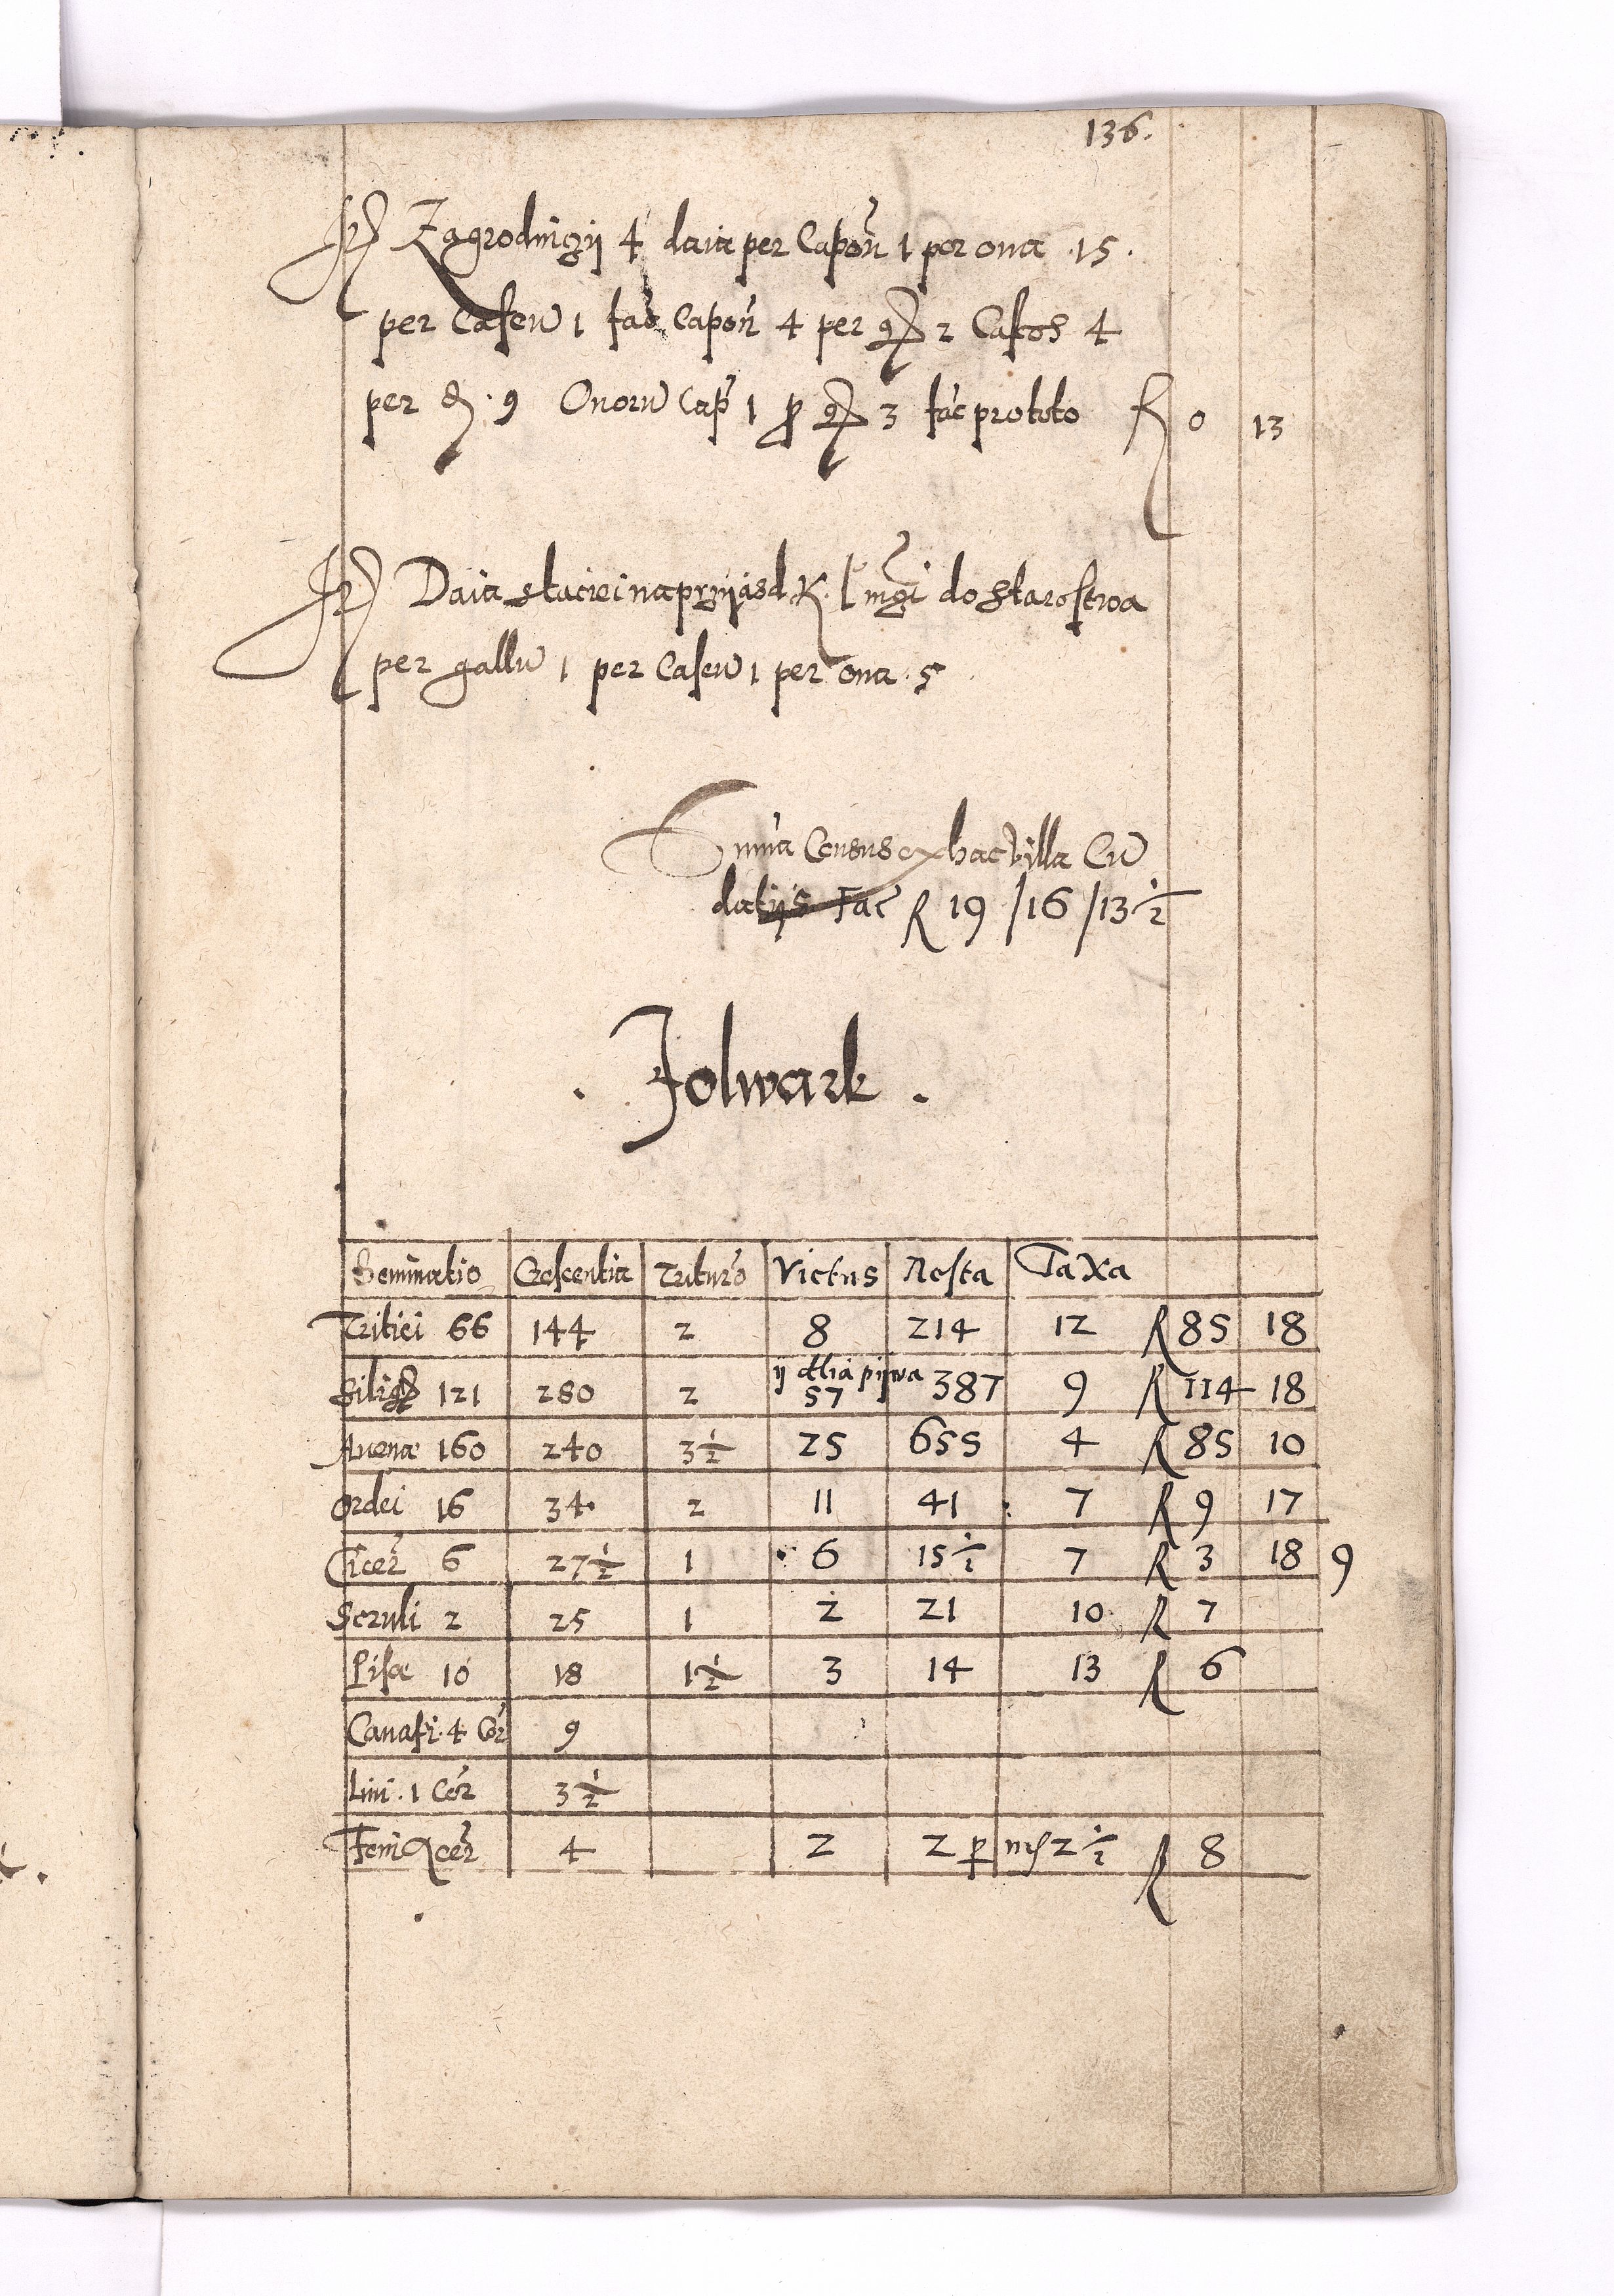 136.
Zagrodniczy 4 daia per Capon 1 per oua 15.
per Caseu 1 fac Capon 4 per gr 2 Caseos 4
per d. 9 Ouoru Cap 1 p gr 3 fac pro toto R 0 13
Daia staciei na przyiasd K. l mgi do starostwa
per gallu 1 per Caseu 1 per oua 5
Suma Census ex hac villa Cu
datiis fac R 19 /16 /13 1/2
. Folwark .
Seminatio Crescentia Trituro Victus Resta Taxa
Tritici 66 144 2 8 214 12 R 85 18
Silig 121 280 2 ij dlia piwa 57 387 9 R 114 18
Auena 160 240 3 1/2 25 655 4 R 85 10
Ordei 16 34 2 11 41 7 R 9 17
Cicer 6 27 1/2 1 6 15 1/2 7 R 3 18 9
2 25 1 2 21 10 R 7
Pisae 10 18 1 1/2 3 14 13 R 6
Canapi 4 Cor 9
Lini 1 Cor 3 1/2
Feni acer 4 2 2 p mr 2 1/2 R 8